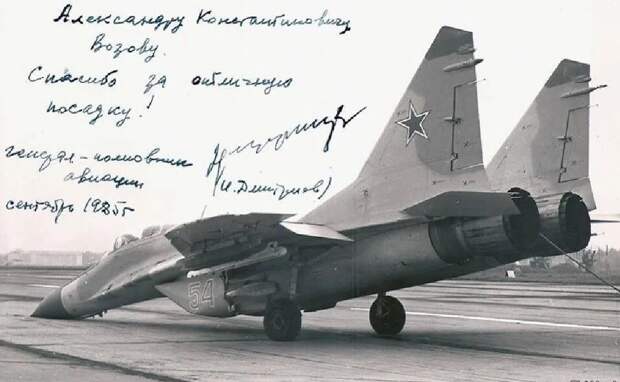 Александру Константиновичу
Возову.
Спасибо за отличную
посадку!
генерал-полковник
авиации
(И. Дмитриев)
сентябрь 1985г
54